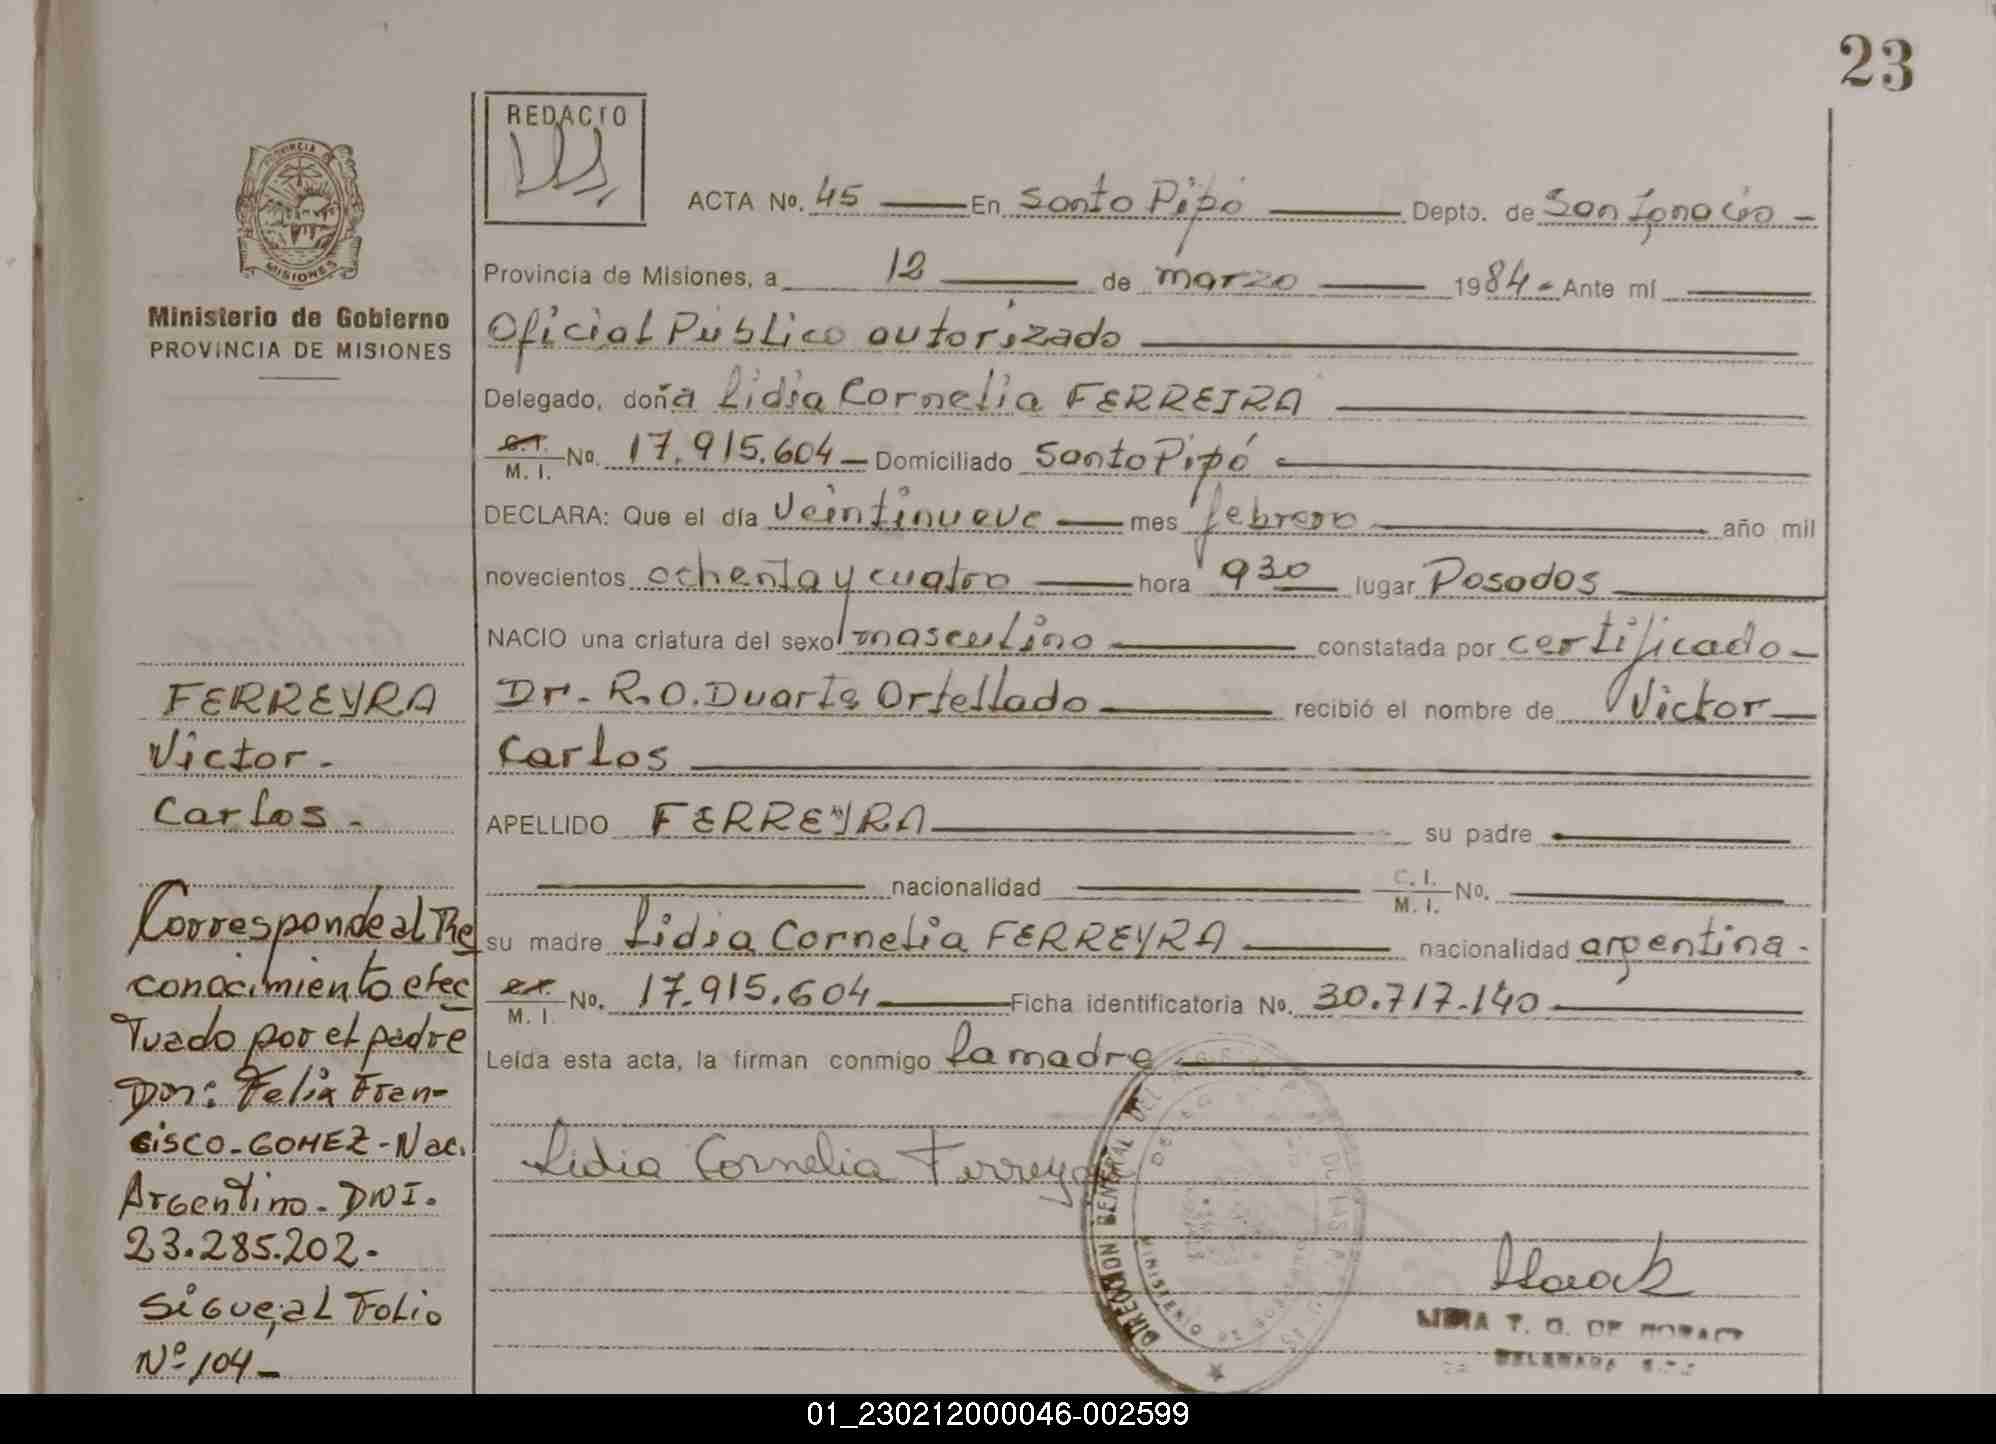 23
REDACTO
PROVINCIA DE
MISIONES
Ministerio de Gobierno
PROVINCIA DE MISIONES
ACTA No. 45 En Santo Pipó Depto. de San Ignacio -
Provincia de Misiones, a 12 de marzo 1984 - Ante mí
Oficial Público autorizado
Delegado, doña Lidia Cornelia FERREIRA
C.I. M. I. No. 17.915.604 - Domiciliado Santo Pipó
DECLARA: Que el día veintinueve mes febrero año mil
novecientos ochenta y cuatro hora 930 lugar Posadas
NACIO una criatura del sexo masculino constatada por certificado -
Dr. R.O. Duarte Ortellado recibió el nombre de Victor
Carlos
APELLIDO FERREYRA su padre
nacionalidad C. I. M. I. No.
su madre Lidia Cornelia FERREYRA nacionalidad argentina -
M. I. No. 17.915.604 Ficha identificatoria No. 30.717.140
Leída esta acta, la firman conmigo la madre
Lidia Cornelia Ferreyra
FERREYRA
Victor -
Carlos -
Corresponde al Re
conocimiento efec
tuado por el padre
Don: Felix Fran-
cisco - GOMEZ - Nac.
Argentino - DNI.
23.285.202 -
Sigue, al Folio
Nº 104 -
DIRECCION GENERAL DEL
MINISTERIO DE GOBIERNO
DELEGADA
01_230212000046-002599